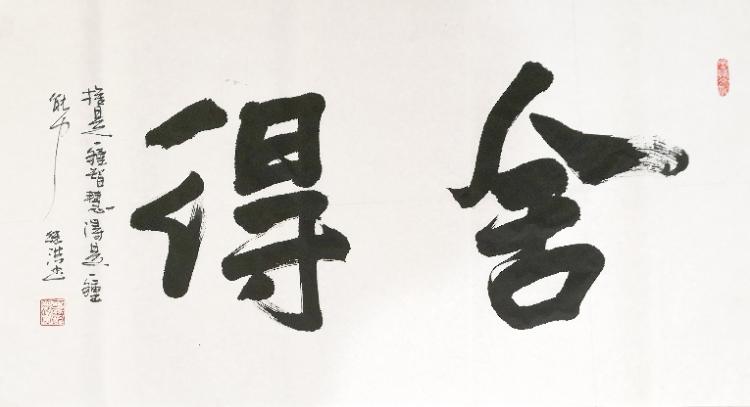 舍得
捨是一種智慧得是一種
能力